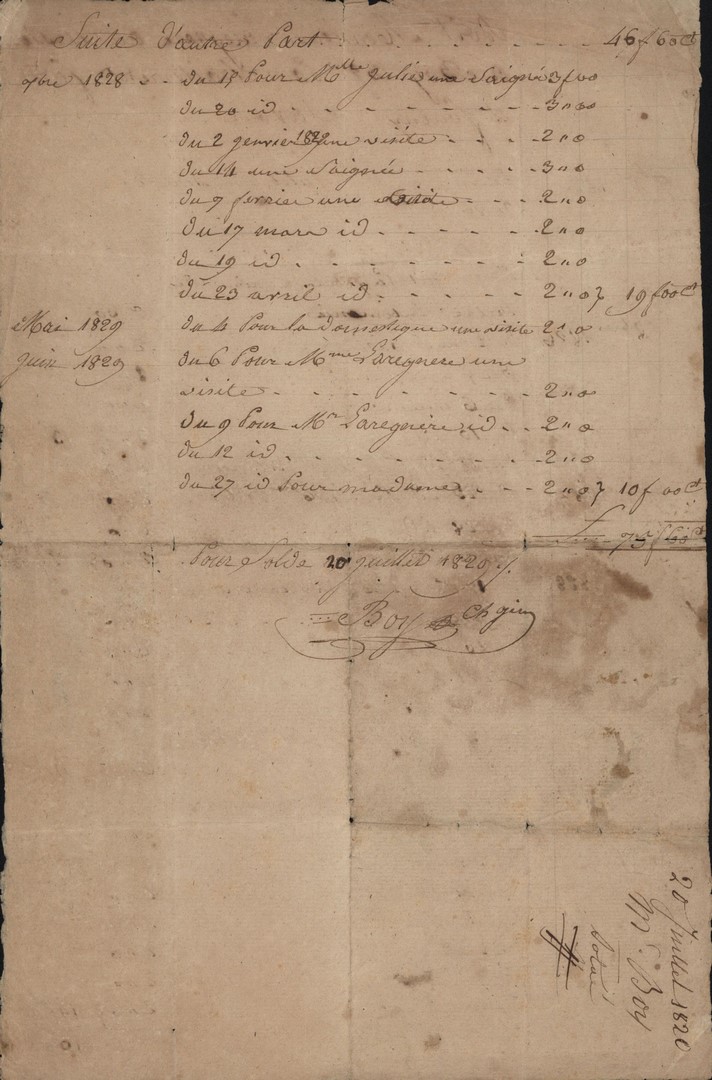 Suite D'autre Part . . . . . . . . . 46f 60ct
9bre 1828 . . du 15 Pour Mlle Julie une Saignée 3f 00
du 20 id . . . . . . . 3 " 00
du 2 genvier 1829 une visite . . . 2 " 0
du 14 une Saignée . . . . 3 " 0
du 9 fevrier une visite . . . 2 " 0
du 17 mars id . . . . . 2 " 0
du 19 id . . . . . . . 2 " 0
du 23 avril id . . . . . 2 " 0 } 19f 00ct
Mai 1829 du 4 Pour la domestique une visite 2 " 0
juin 1829 du 6 Pour Mme Laregnere une
visite . . . . . . . 2 " 0
du 9 Pour Mr Laregnère id . . 2 " 0
du 12 id . . . . . . . 2 " 0
du 27 id Pour madame . . . 2 " 0 } 10f 00ct
75f 60ct
Pour Solde 20 juillet 1829 /.
Boy Chgien
20 Juillet 1820
Mr. Boy